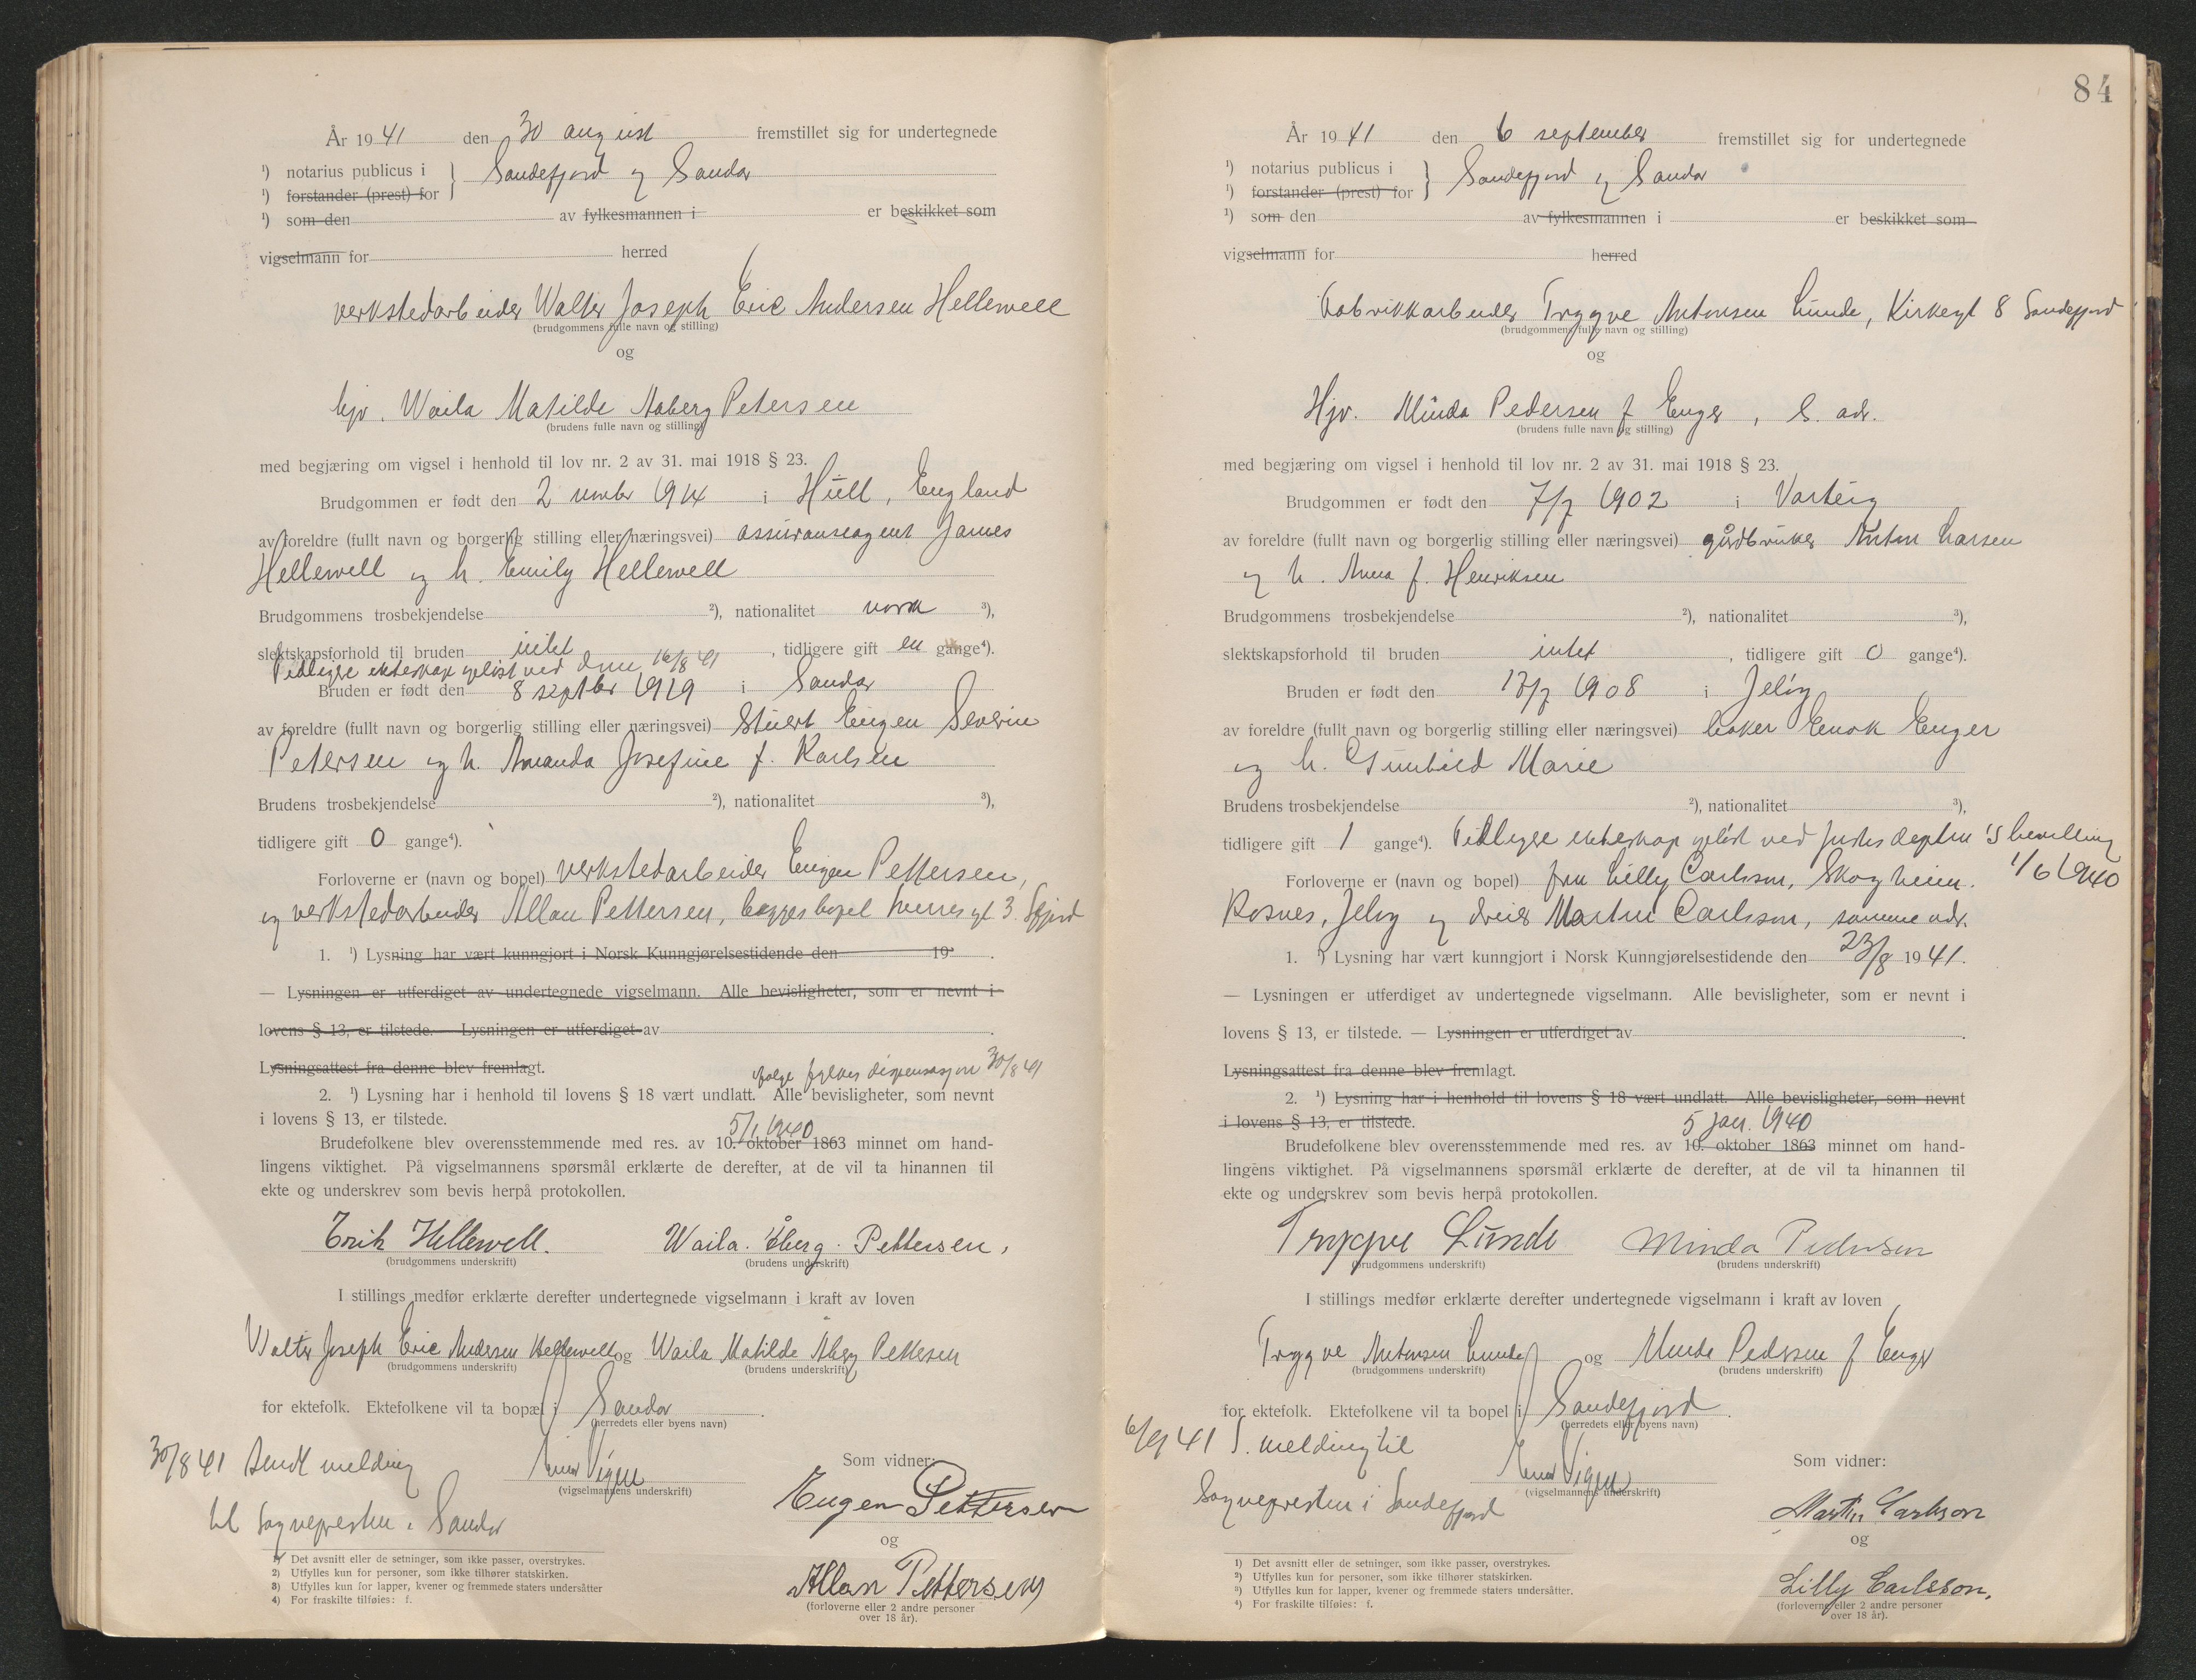 År 1941 den 30 august fremstillet sig for undertegnede
¹) notarius publicus i } Sandefjord og Sandar
¹) forstander (prest) for
¹) som den av fylkesmannen i er beskikket som
vigselmann for herred
verkstedarbeider Walter Joseph Eric Andersen Hellewell
(brudgommens fulle navn og stilling)
og
hjv. Waila Matilde Aaberg Petersen
(brudens fulle navn og stilling)
med begjæring om vigsel i henhold til lov nr. 2 av 31. mai 1918 § 23.
Brudgommen er født den 2 novbr 1914 i Hull, England
av foreldre (fullt navn og borgerlig stilling eller næringsvei) assuranseagent James
Hellewell og h. Emily Hellewell
Brudgommens trosbekjendelse ²), nationalitet norsk ³),
slektskapsforhold til bruden intet, tidligere gift en gange⁴).
Tidligere ekteskap opløst ved dom 16/8 41
Bruden er født den 8 septbr 1919 i Sandar
av foreldre (fullt navn og borgerlig stilling eller næringsvei) Stuert Eugen Severin
Petersen og h. Amanda Josefine f. Karlsen
Brudens trosbekjendelse ²), nationalitet ³),
tidligere gift 0 gange⁴).
Forloverne er (navn og bopel) verkstedarbeider Eugen Pettersen,
og verkstedarbeider Allan Pettersen, begges bopel 3. Sfjord
1. ¹) Lysning har vært kunngjort i Norsk Kunngjørelsestidende den 19 .
— Lysningen er utferdiget av undertegnede vigselmann. Alle bevisligheter, som er nevnt i
lovens § 13, er tilstede. — Lysningen er utferdiget av .
Lysningsattest fra denne blev fremlagt.
ifølge fylkes dispensasjon 30/8 41
2. ¹) Lysning har i henhold til lovens § 18 vært undlatt. Alle bevisligheter, som nevnt
i lovens § 13, er tilstede.
5/1 1940
Brudefolkene blev overensstemmende med res. av 10. oktober 1863 minnet om hand-
lingens viktighet. På vigselmannens spørsmål erklærte de derefter, at de vil ta hinannen til
ekte og underskrev som bevis herpå protokollen.
Erik Hellewell. Waila. Åberg. Pettersen,
(brudgommens underskrift) (brudens underskrift)
I stillings medfør erklærte derefter undertegnede vigselmann i kraft av loven
Walter Joseph Eric Andersen Hellewell og Waila Matilde Åberg Pettersen
(brudgommens underskrift) (brudens underskrift)
for ektefolk. Ektefolkene vil ta bopæl i Sandar .
(herredets eller byens navn)
30/8 41 Sendt melding
til sognepresten i Sandar
Einar Vigen
(vigselmannens underskrift)
Som vidner:
Eugen Pettersen
og
Allan Pettersen
(forloverne eller 2 andre personer
over 18 år).
1) Det avsnitt eller de setninger, som ikke passer, overstrykes.
2) Utfylles kun for personer, som ikke tilhører statskirken.
3) Utfylles kun for lapper, kvener og fremmede staters undersåtter
4) For fraskilte tilføies: f.
84
År 1941 den 6 september fremstillet sig for undertegnede
¹) notarius publicus i } Sandefjord og Sandar
¹) forstander (prest) for
¹) som den av fylkesmannen i er beskikket som
vigselmann for herred
Fabrikkarbeider Trygve Antonsen Lunde, Kirkegt 8 Sandefjord
(brudgommens fulle navn og stilling)
og
Hjv. Minda Pedersen f Enger, S. adr.
(brudens fulle navn og stilling)
med begjæring om vigsel i henhold til lov nr. 2 av 31. mai 1918 § 23.
Brudgommen er født den 7/7 1902 i Varteig
av foreldre (fullt navn og borgerlig stilling eller næringsvei) gårdbruker Anton Larsen
og h. Anna f. Henriksen
Brudgommens trosbekjendelse ²), nationalitet ³),
slektskapsforhold til bruden intet, tidligere gift 0 gange⁴).
Bruden er født den 17/7 1908 i Jeløy
av foreldre (fullt navn og borgerlig stilling eller næringsvei) baker Enok Enger
og h. Gunhild Marie
Brudens trosbekjendelse ²), nationalitet ³),
tidligere gift 1 gange⁴). Tidligere ekteskap opløst ved Justisdeptm's bevilling
1/6 1940
Forloverne er (navn og bopel) fru Lilly Carlsson, Skogheim.
Rosnes, Jeløy og dreier Martin Carlsson, samme adr.
1. ¹) Lysning har vært kunngjort i Norsk Kunngjørelsestidende den 23/8 1941.
— Lysningen er utferdiget av undertegnede vigselmann. Alle bevisligheter, som er nevnt i
lovens § 13, er tilstede. — Lysningen er utferdiget av .
Lysningsattest fra denne blev fremlagt.
2. ¹) Lysning har i henhold til lovens § 18 vært undlatt. Alle bevisligheter, som nevnt
i lovens § 13, er tilstede.
5 jan. 1940
Brudefolkene blev overensstemmende med res. av 10. oktober 1863 minnet om hand-
lingens viktighet. På vigselmannens spørsmål erklærte de derefter, at de vil ta hinannen til
ekte og underskrev som bevis herpå protokollen.
Trygve Lunde Minda Pedersen
(brudgommens underskrift) (brudens underskrift)
I stillings medfør erklærte derefter undertegnede vigselmann i kraft av loven
Trygve Antonsen Lunde og Minda Pedersen f Enger
(brudgommens underskrift) (brudens underskrift)
for ektefolk. Ektefolkene vil ta bopel i Sandefjord .
(herredets eller byens navn)
6/9 41 S. melding til
Sognepresten i Sandefjord
Einar Vigen
(vigselmannens underskrift)
Som vidner:
Martin Carlsson
og
Lilly Carlsson,
(forloverne eller 2 andre personer
over 18 år).
1) Det avsnitt eller de setninger, som ikke passer, overstrykes.
2) Utfylles kun for personer, som ikke tilhører statskirken.
3) Utfylles kun for lapper, kvener og fremmede staters undersåtter.
4) For fraskilte tilføies: f.